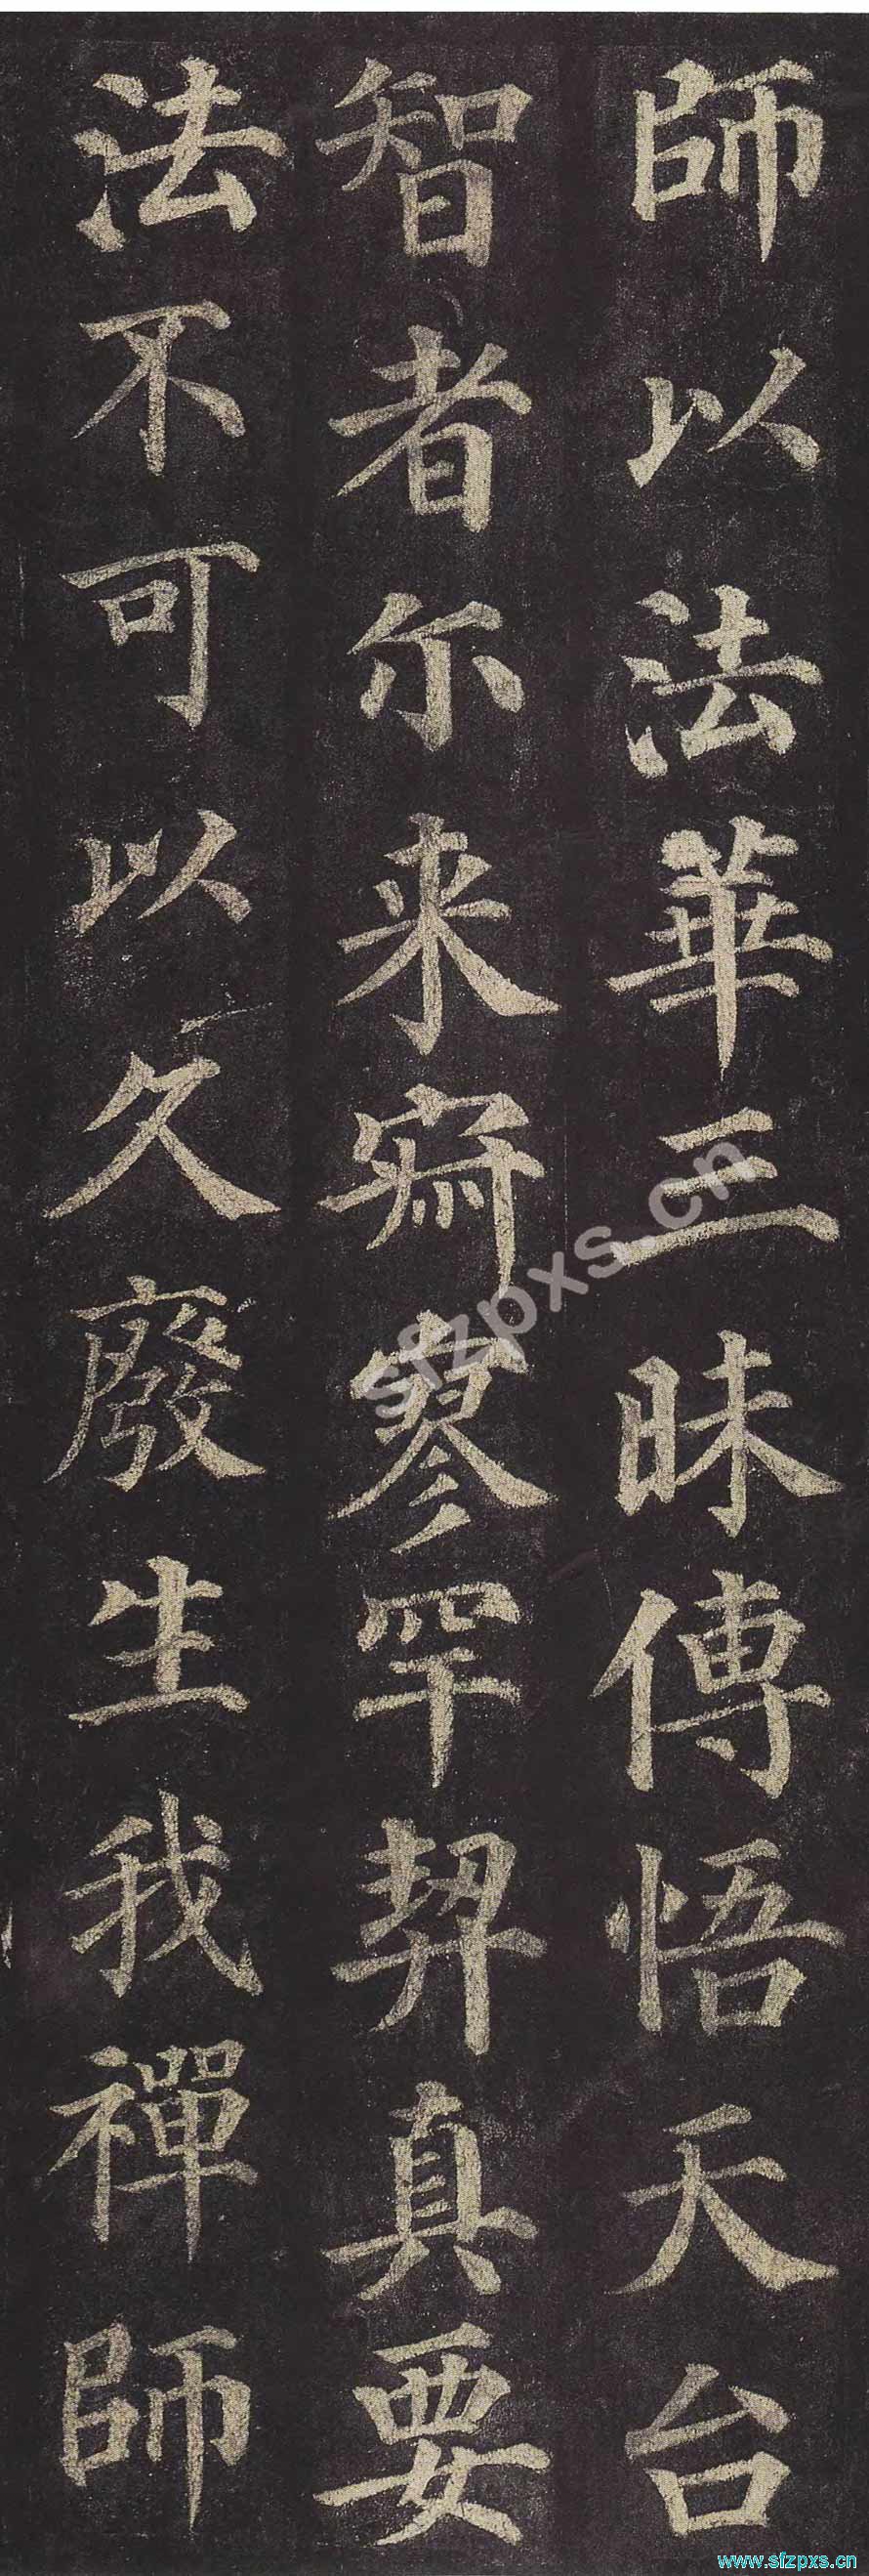 師以法華三昧傳悟天台
智者尔来寂寥罕契真要
法不可以久廢生我禪師
sfzpxs.cn
www.sfzpxs.cn